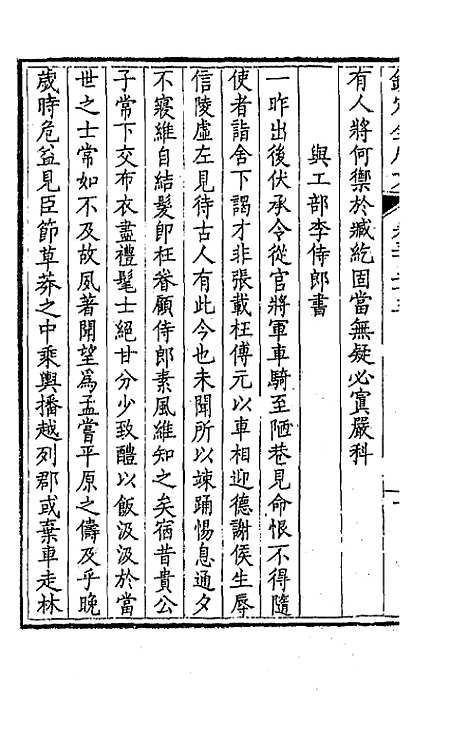 有人將何禦於臧紇固當無疑必寘嚴科
與工部李侍郎書
一昨出後伏承令從官將軍車騎至陋巷見命恨不得隨
使者詣舍下謁才非張載枉傅元以車相迎德謝侯生辱
信陵虛左見待古人有此今也未聞所以竦踊惕息通夕
不寢維自結髮卽枉眷顧侍郎素風維知之矣宿昔貴公
子常下交布衣盡禮髦士絕甘分少致醴以飯汲汲於當
世之士常如不及故夙著聞望爲孟嘗平原之儔及乎晚
歲時危益見臣節草莽之中乘輿播越列郡或棄車走林